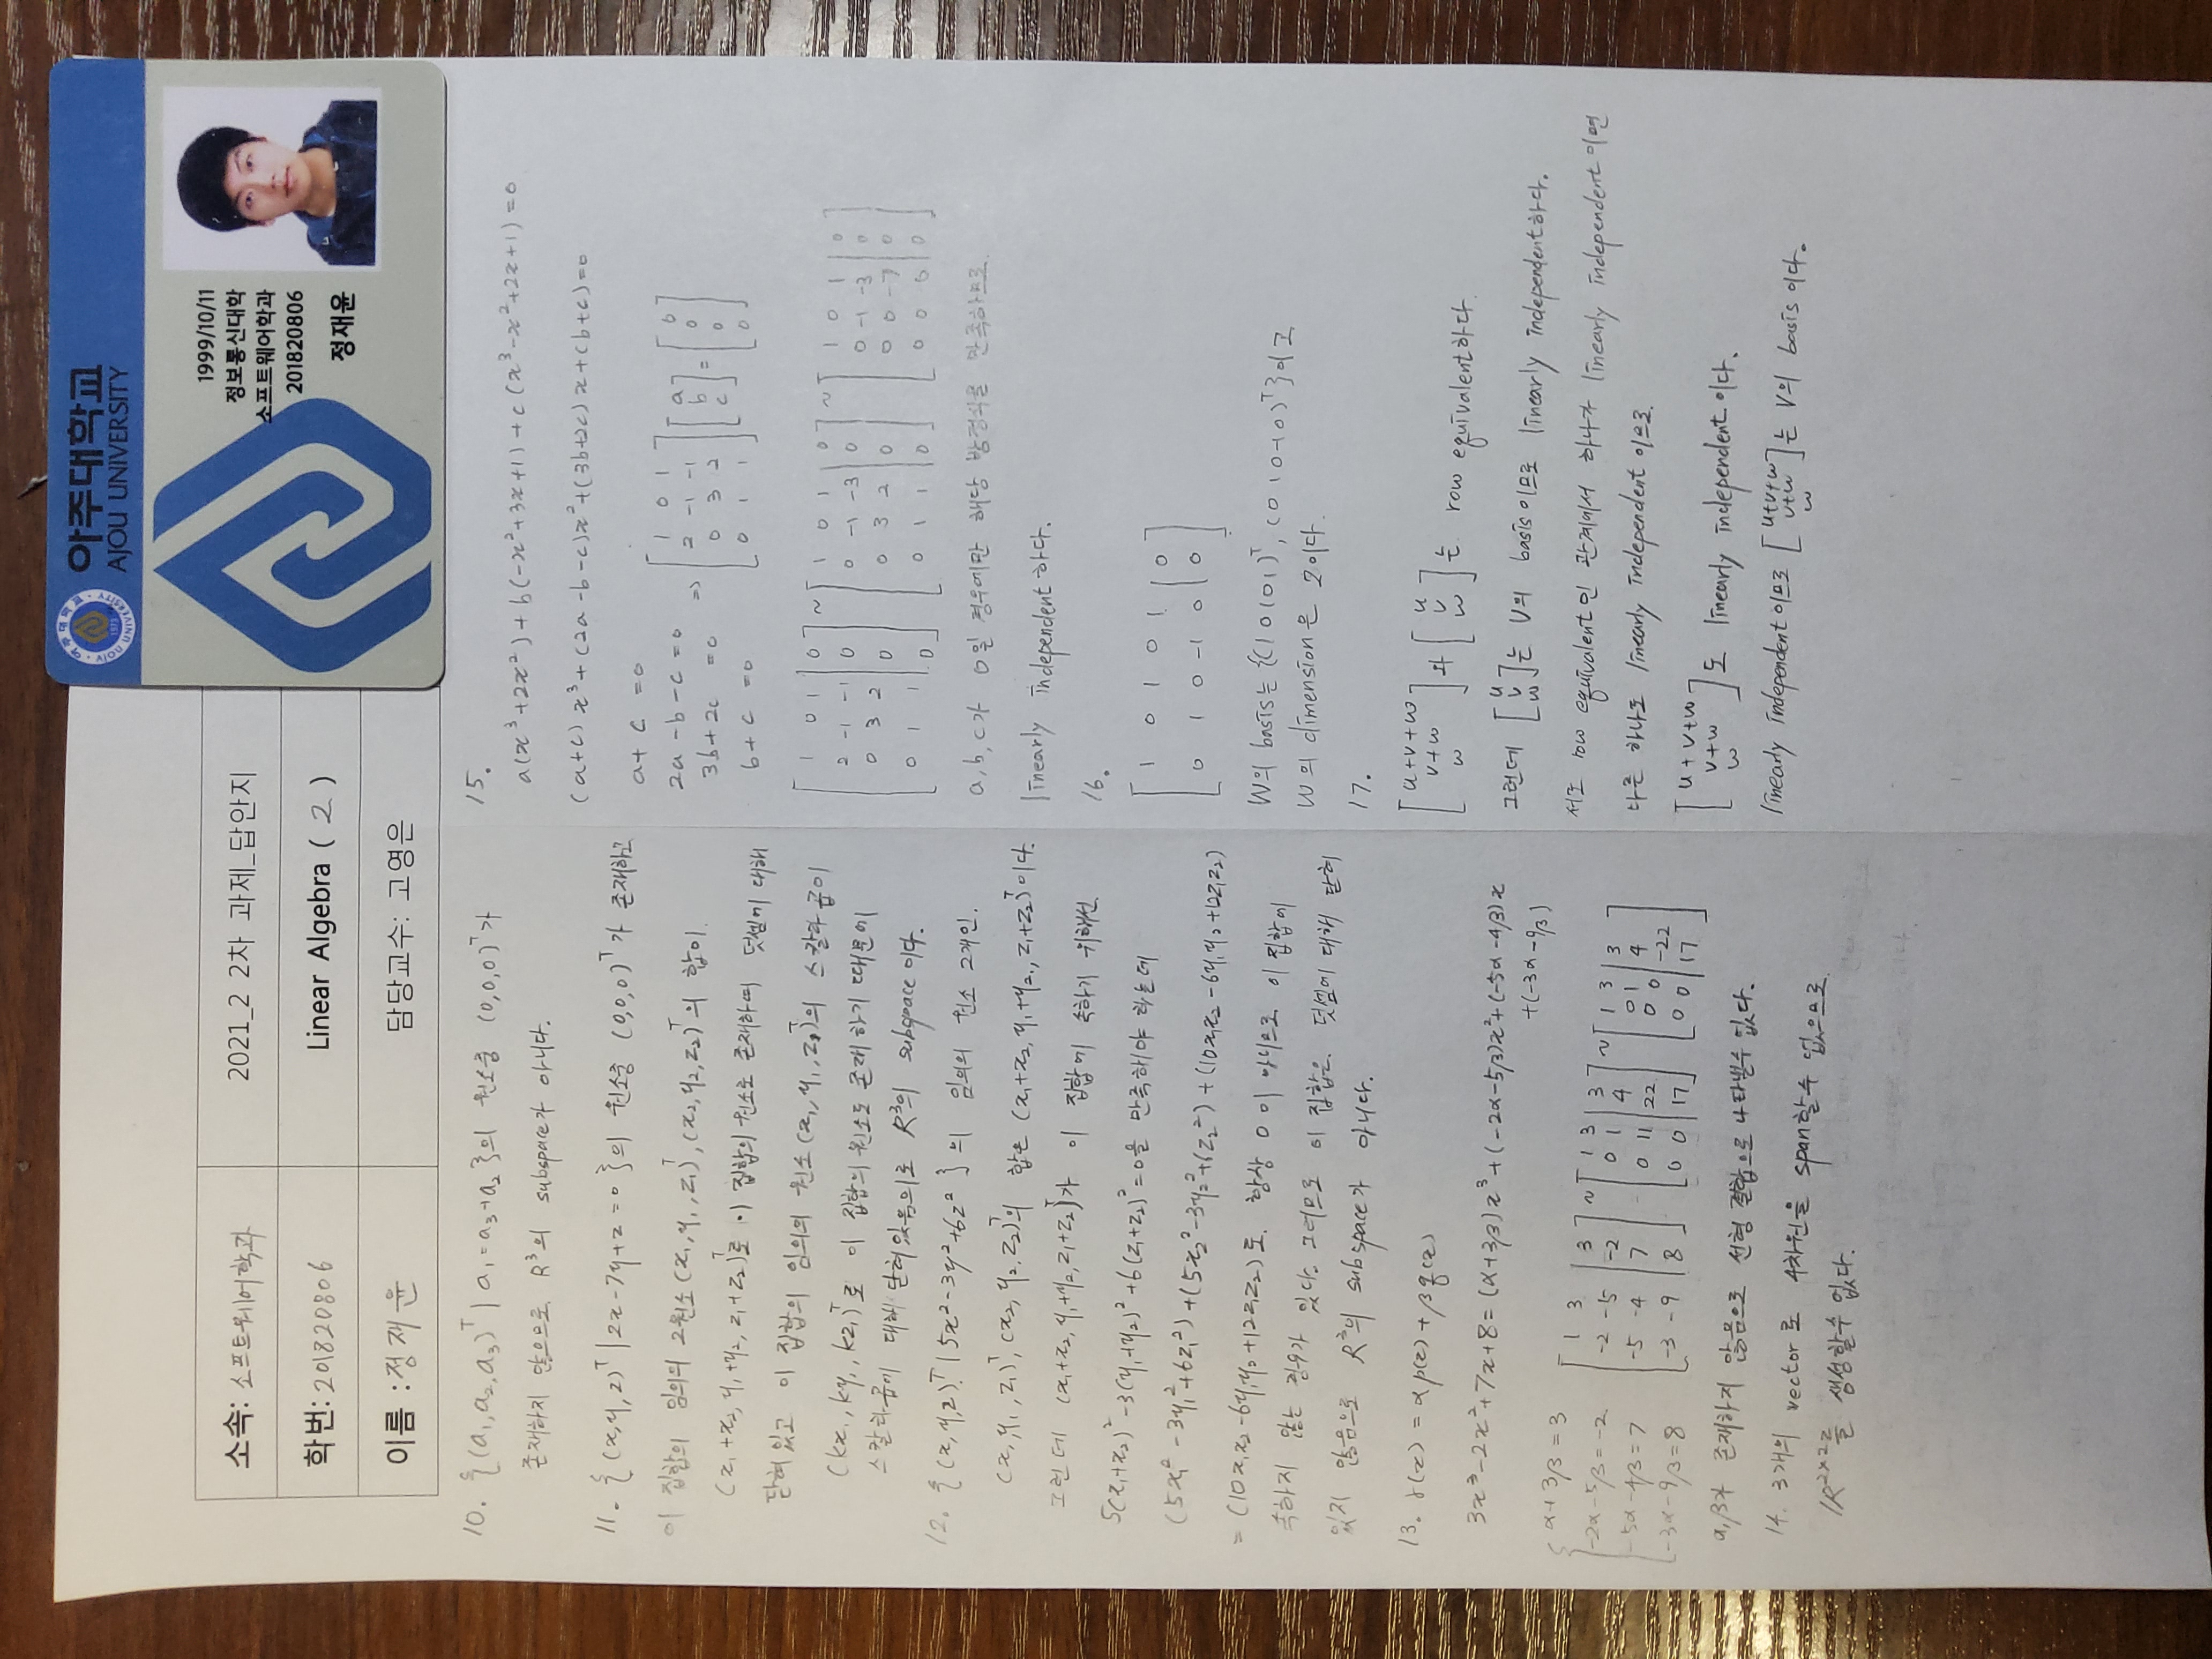 아주대학교
AJOU UNIVERSITY
1999/10/11
정보통신대학
소프트웨어학과
201820806
정재윤
소속: 소프트웨어학과
2021_2 2차 과제_답안지
학번: 201820806
Linear Algebra ( 2 )
이름 : 정재윤
담당교수: 고영은
10. {(a₁,a₂,a₃)ᵀ | a₁=a₃+a₂}의 원소중 (0,0,0)ᵀ가
존재하지 않으므로 R³의 subspace가 아니다.
11. {(x,y,z)ᵀ | 2x-7y+z=0}의 원소중 (0,0,0)ᵀ가 존재하고
이 집합의 임의의 2원소 (x₁,y₁,z₁)ᵀ, (x₂,y₂,z₂)ᵀ의 합이
(x₁+x₂, y₁+y₂, z₁+z₂)ᵀ로 이 집합의 원소로 존재하며 덧셈에 대해
닫혀있고 이 집합의 임의의 원소 (x₁,y₁,z₁)ᵀ의 스칼라 곱이
(kx₁,ky₁,kz₁)ᵀ로 이 집합의 원소도 존재하기 때문에
스칼라곱에 대해 닫혀있음의로 R³의 subspace이다.
12. {(x,y,z)ᵀ | 5x²-3y²+6z²}의 임의의 원소 2개인.
(x₁,y₁,z₁)ᵀ, (x₂,y₂,z₂)ᵀ의 합은 (x₁+x₂, y₁+y₂, z₁+z₂)ᵀ이다.
그런데 (x₁+x₂, y₁+y₂, z₁+z₂)ᵀ가 이 집합에 속하기 위해선
5(x₁+x₂)²-3(y₁+y₂)²+6(z₁+z₂)²=0을 만족해야 하는데
(5x₁²-3y₁²+6z₁²)+(5x₂²-3y₂²+6z₂²)+(10x₁x₂-6y₁y₂+12z₁z₂)
= (10x₁x₂-6y₁y₂+12z₁z₂)도. 항상 0이 아니므로 이 집합에
속하지 않는 경우가 있다. 그러므로 이 집합은. 덧셈에 대해 닫혀
있지 않음으로 R³의 subspace가 아니다.
13. r(x) = αp(x)+βq(x)
3x³-2x²+7x+8=(α+3β)x³+(-2α-5β)x²+(-5α-4β)x
+(-3α-9β)
{ α+3β=3
-2α-5β=-2
-5α-4β=7
-3α-9β=8
[ 1 3 | 3 ] ~ [ 1 3 | 3 ] ~ [ 1 3 | 3 ]
[ -2 -5 | -2 ] [ 0 1 | 4 ] [ 0 1 | 4 ]
[ -5 -4 | 7 ] [ 0 11 | 22 ] [ 0 0 | -22 ]
[ -3 -9 | 8 ] [ 0 0 | 17 ] [ 0 0 | 17 ]
α,β가 존재하지 않음으로 선형 결합으로 나타낼수 없다.
14. 3개의 vector로 4차원을 span할수 없으므로
R²ˣ²를 생성할수 없다.
15.
a(x³+2x²)+b(-x²+3x+1)+c(x³-x²+2x+1)=0
(a+c)x³+(2a-b-c)x²+(3b+2c)x+(b+c)=0
a+c =0
2a-b-c=0
3b+2c =0
b+c =0
⇒ [ 1 0 1 ] [ a ] = [ 0 ]
[ 2 -1 -1 ] [ b ] [ 0 ]
[ 0 3 2 ] [ c ] [ 0 ]
[ 0 1 1 ] [ 0 ]
[ 1 0 1 | 0 ] ~ [ 1 0 1 | 0 ] ~ [ 1 0 1 | 0 ]
[ 2 -1 -1 | 0 ] [ 0 -1 -3 | 0 ] [ 0 -1 -3 | 0 ]
[ 0 3 2 | 0 ] [ 0 3 2 | 0 ] [ 0 0 -7 | 0 ]
[ 0 1 1 | 0 ] [ 0 1 1 | 0 ] [ 0 0 0 | 0 ]
a,b,c가 0일 경우에만 해당 방정식을 만족하므로
linearly independent하다.
16.
[ 1 0 1 0 1 | 0 ]
[ 0 1 0 -1 0 | 0 ]
W의 basis는 {(1 0 1 0 1)ᵀ, (0 1 0 -1 0)ᵀ}이고
W의 dimension은 2이다.
17.
[ u+v+w ] 와 [ u ] 는 row equivalent하다.
[ v+w ] [ v ]
[ w ] [ w ]
그런데 [ u v w ]는 V의 basis이므로 linearly independent하다.
서로 row equivalent인 관계에서 하나가 linearly independent이면
다른 하나도 linearly independent이므로
[ u+v+w ] 도 linearly independent이다.
[ v+w ]
[ w ]
linearly independent이므로 [ u+v+w v+w w ]는 V의 basis이다.